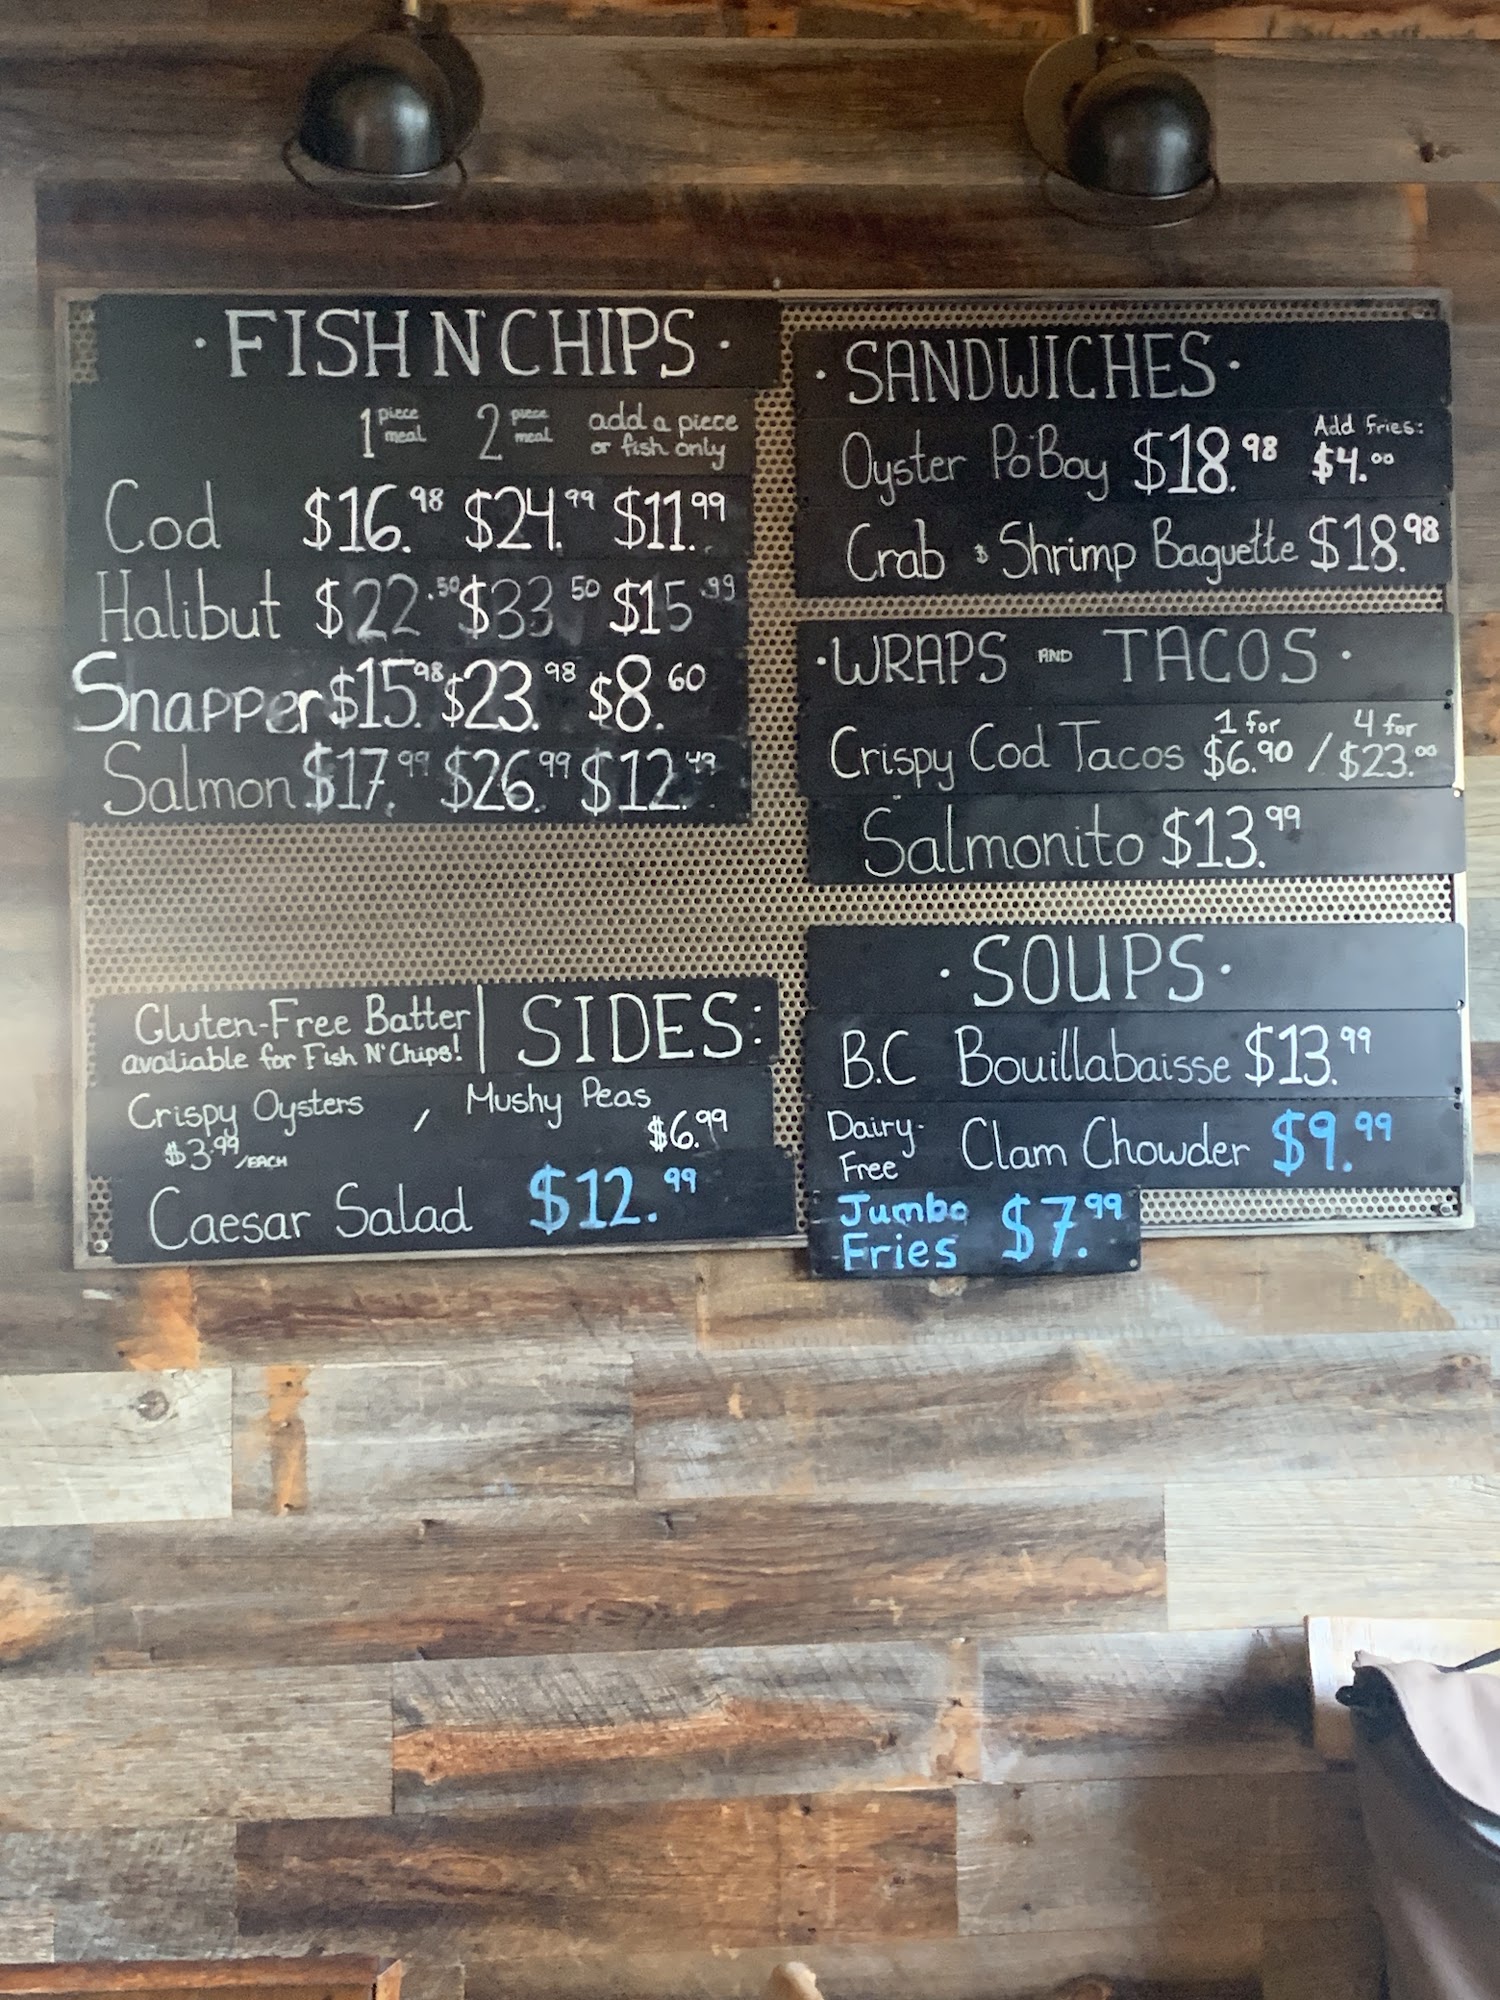 · FISH N' CHIPS ·
1 piece meal 2 piece meal add a piece or fish only
Cod $16.98 $24.99 $11.99
Halibut $22.50 $33 50 $15.99
Snapper $15.98 $23.98 $8.60
Salmon $17.99 $26.99 $12.49
Gluten-Free Batter | SIDES:
avaliable for Fish N' Chips!
Crispy Oysters / Mushy Peas
$3.99/EACH $6.99
Caesar Salad $12.99
· SANDWICHES ·
Add Fries:
Oyster Po'Boy $18.98 $4.00
Crab & Shrimp Baguette $18.98
· WRAPS AND TACOS ·
1 for 4 for
Crispy Cod Tacos $6.90 / $23.00
Salmonito $13.99
· SOUPS ·
B.C Bouillabaisse $13.99
Dairy-Free Clam Chowder $9.99
Jumbo Fries $7.99